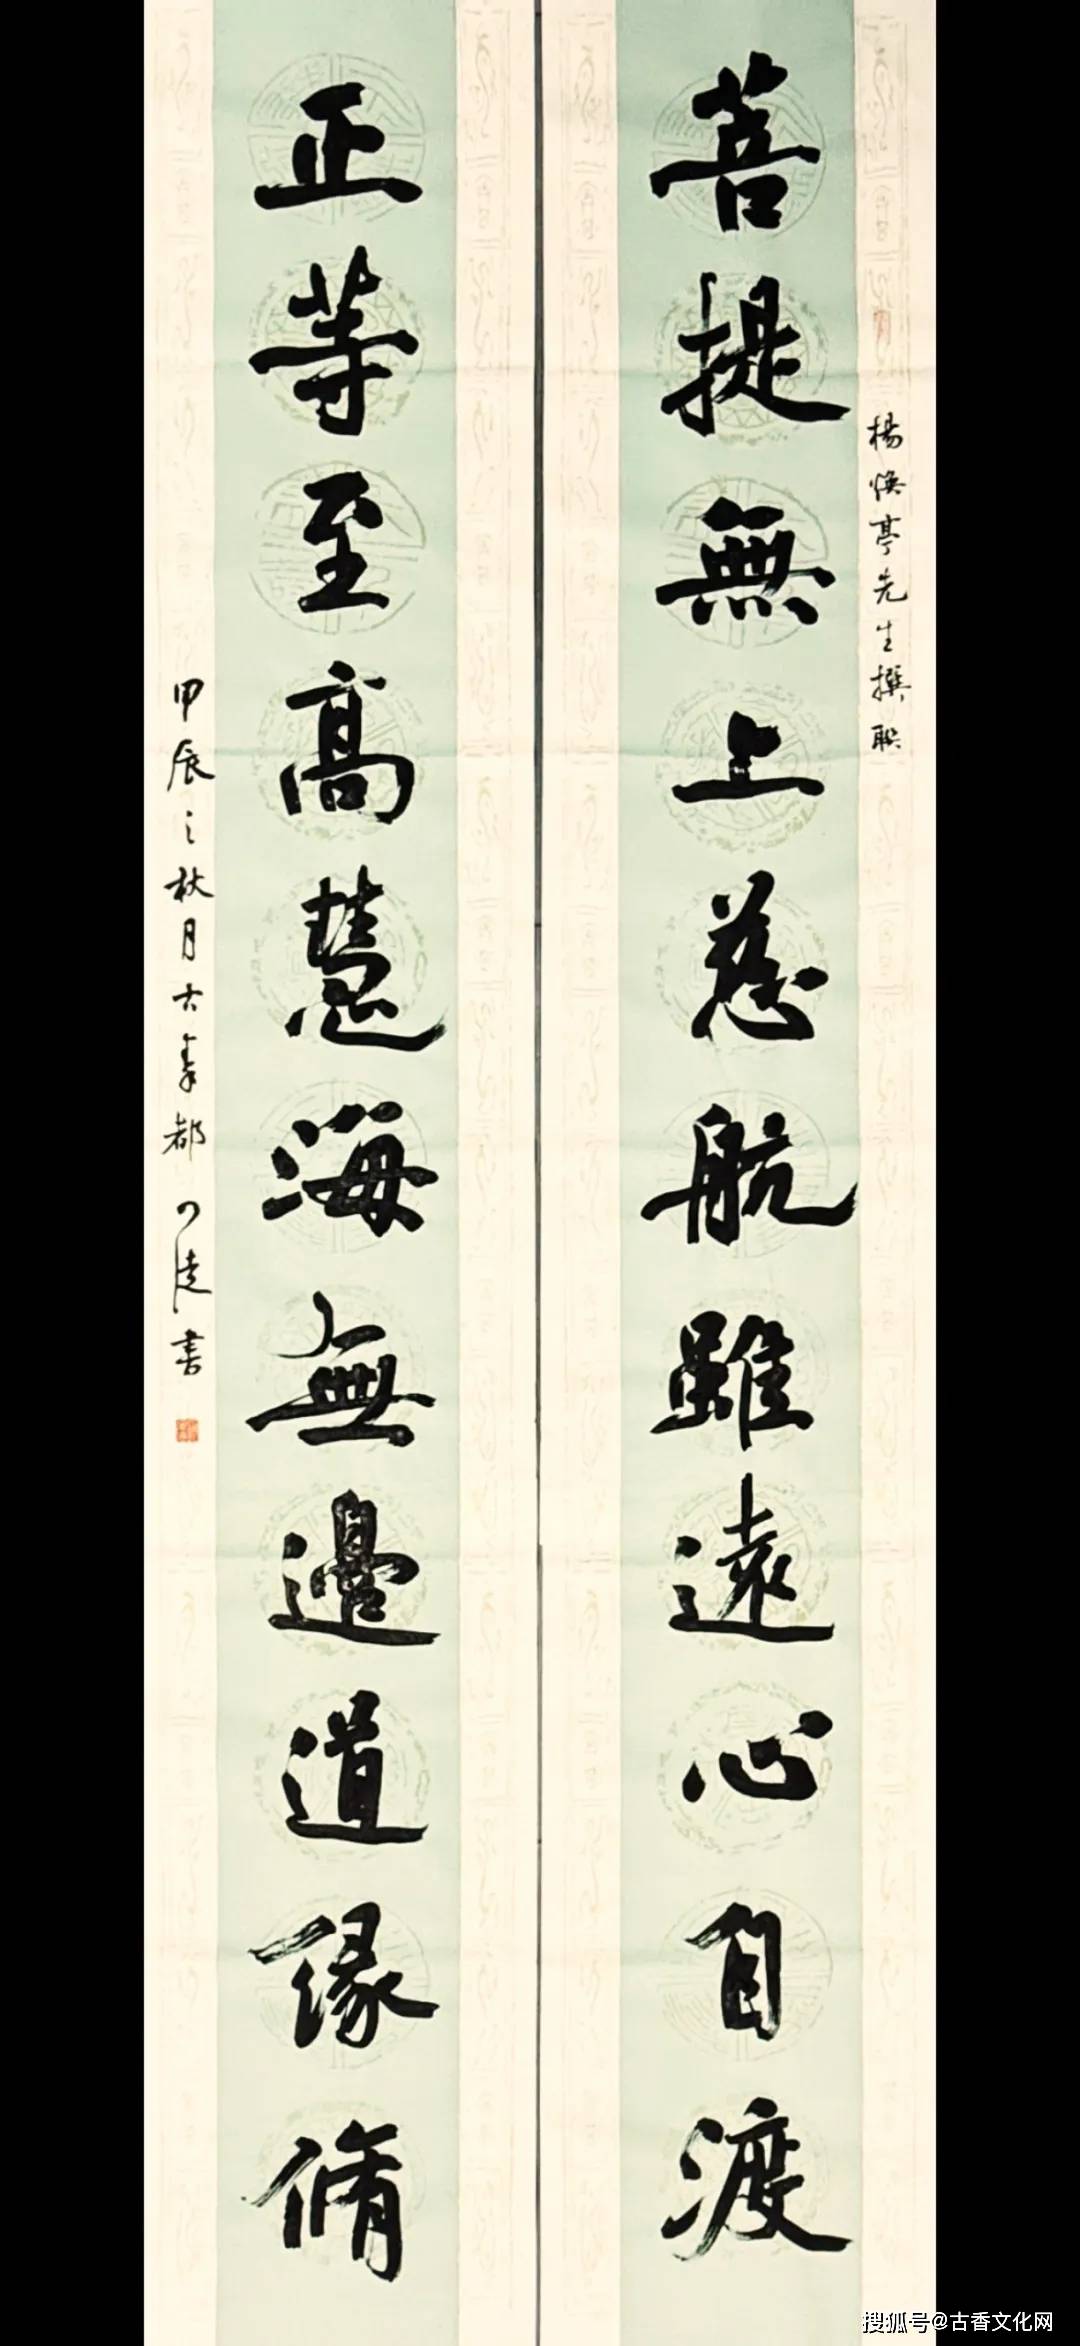 楊煥亭先生撰联
菩提無上慈航雖遠心自渡
正等至高慧海無邊道缘脩
甲辰之秋月古秦都
书
搜狐号@古香文化网